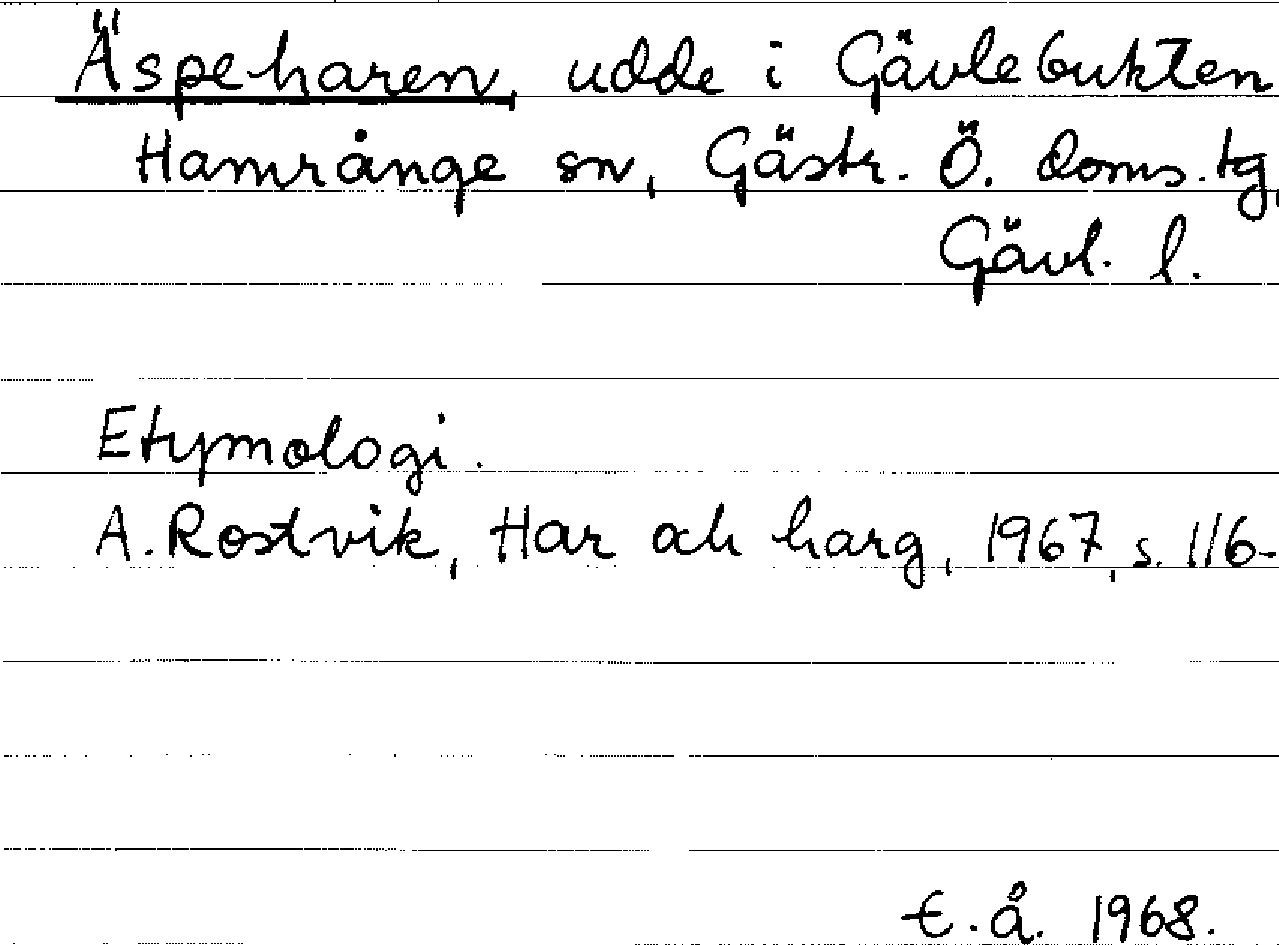 Äspeharen, udde i Gävlebukten
Hamrånge sn, Gästr. Ö. doms.tg,
Gävl. l.
Etymologi.
A. Rostvik, Har och harg, 1967, s. 116-
t.å. 1968.